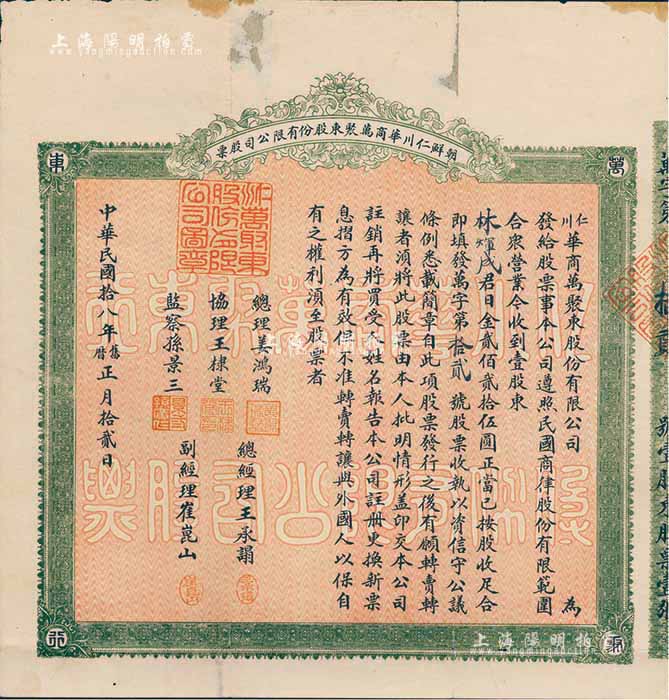 上海陽明拍賣
www.yangmingauction.com
朝鮮仁川華商萬聚東股份有限公司股票
萬
聚
東
仁川華商萬聚東股份有限公司 為
發給股票事本公司遵照民國商律股份有限範圍
合眾營業今收到壹股東
林輝成君日金貳佰貳拾伍圓正當已按股收足合
即填發萬字第拾貳號股票收執以資信守公議
條例悉載簡章自此項股票發行之後有願轉賣轉
讓者須將此股票由本人批明情形蓋印交本公司
註銷再將買受人姓名報告本公司註册更換新票
息摺方為有效但不准轉賣轉讓與外國人以保自
有之權利須至股票者
總理姜鴻瑞
協理王棣堂
監察孫景三
總經理王承謁
副經理崔崑山
中華民國拾八年舊曆正月拾貳日
仁川萬聚東股份有限公司圖章
上海陽明拍賣
上海陽明拍賣
www.yangmingauction.com